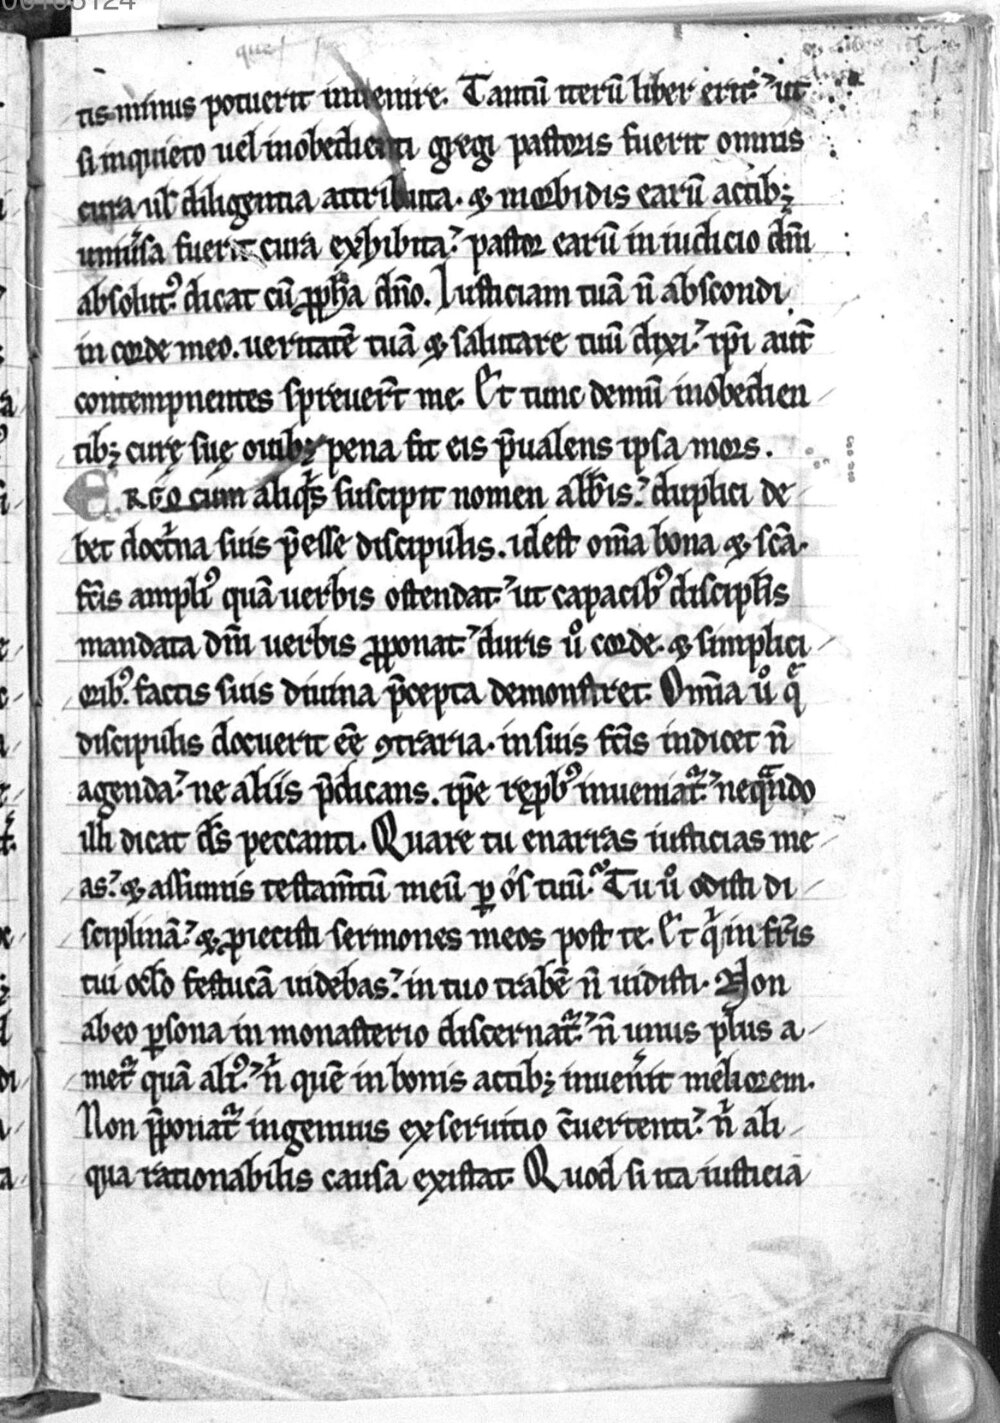 tis minus potuerit inuenire. Tantū iterū liber erit. ut
si inquieto uel inobedienti gregi pastoris fuerit omnis
cura ul diligentia attributa. & morbidis earū actib;
uniũsa fuerit cura exhibita. pastor earū in iudicio dñi
absolut⁹. dicat cū ꝓph̃a dño. Iusticiam tuā ñ abscondi
in corde meo. ueritatē tuā & salutare tuū dixi. ip̃i aut̃
contempnentes spreuer̃t me. Et tunc demū inobedien
tib; curę suę ouib; pena sit eis p̃ualens ipsa mors.
ERGO cum aliq̃s suscipit nomen abb̃is. duplici de
bet doct̃na suis p̃esse discipulis. idest om̃a bona & sc̃a.
fc̃is ampli⁹ quā uerbis ostendat. ut capacib⁹ discipl̃is
mandata dñi uerbis ꝓponat. duris u̾ corde. & simplici
orib⁹. factis suis diuina p̃cepta demonstret. Om̃a u̾ q̃
discipulis docuerit eē̃ ꝯtraria. in suis fc̃is indicet ñ
agenda. ne aliis p̃dicans. ip̃e rep̱b⁹ inueniat̃. neq̃ndo
illi dicat d̃s peccanti. Quare tu enarras iusticias me
as. & assumis testam̃tū meū ꝑ os tuū. Tu u̾ odisti di
sciplinā. & ꝓiecisti sermones meos post te. Et q̃ in fr̃is
tui oc̃lo festucā uidebas. in tuo trabē ñ uidisti. Non
abeo ꝑsona in monasterio discernat̃. ñ unus plus a
met̃ quā ali⁹. ñ quē in bonis actib; inuen̾it meliorem.
Non p̃ponat̃ ingenuus ex seruitio c̃uertenti. ñ ali
qua rationabilis causa existat. Quod si ita iusticia